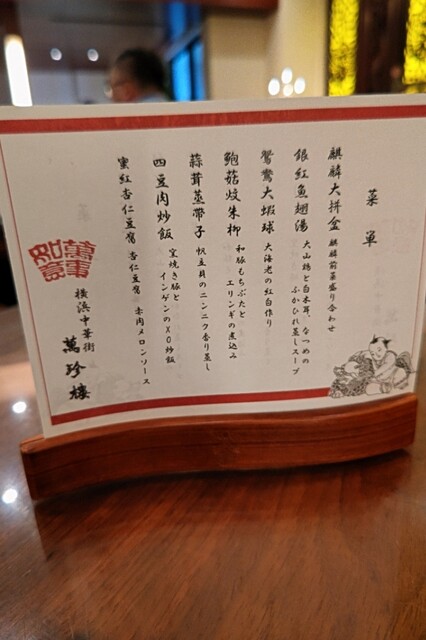 菜単
麒麟大拼盆 麒麟前菜盛り合わせ
銀紅魚翅湯 大山鶏と白木耳、なつめの
ふかひれ蒸しスープ
鴛鴦大蝦球 大海老の紅白作り
鮑菇炆朱柳 和豚もちぶたと
エリンギの煮込み
蒜茸蒸帶子 帆立貝のニンニク香り蒸し
四豆肉炒飯 窯焼き豚と
インゲンのXO炒飯
蜜紅杏仁豆腐 杏仁豆腐 赤肉メロンソース
萬事如意
横浜中華街
萬珍樓